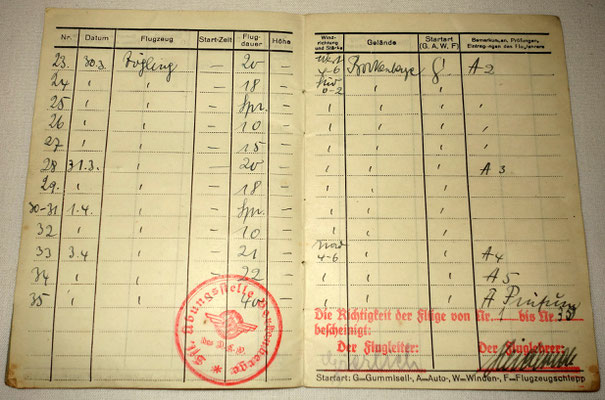 Nr. Datum Flugzeug Start-Zeit Flug-dauer Höhe
23 30.3. Zögling — 20 —
24 " " — 18 —
25 " " — Spr. —
26 " " — 10 —
27 " " — 15 —
28 31.3. " — 20 —
29. " " — 18 —
30-31 1.4. " — Spr. —
32 " " — 10 —
33 3.4 " — 21 —
34 " " — 22 —
35 " " — 40 —
Wind-richtung und Stärke Gelände Startart (G. A, W, F) Bemerkungen, Prüfungen, Eintragungen des Fluglehrers
West 4-6 Borkenberge G! A 2
Süd 0-2 " " "
" " " "
" " " "
" " " "
" " " A 3.
" " "
" " "
" " "
Nord 4-6 " " A 4
" " " A 5
" " " A Prüfung
Die Richtigkeit der Flüge von Nr. 1 bis Nr. 35
bescheinigt:
Der Flugleiter: Der Fluglehrer:
Startart: G—Gummiseil-, A—Auto-, W—Winden-, F—Flugzeugschlepp
Übungsstelle Borkenberge